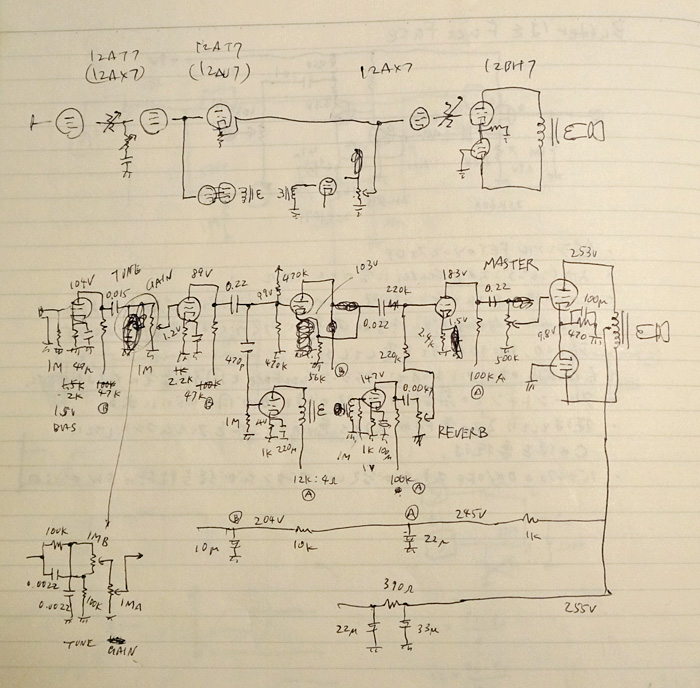 12AT7 12AT7 12AX7 12BH7
(12AX7) (12AU7)
TUNE GAIN
104V 0.015 89V 0.22 99V 470K 103V 220K 183V MASTER 253V
0.22
0.022
1.2V 1.5V 9.8V 100μ
470
1M 40μ 1M 1K 470P 470K 56K 220K 2.4K 500K
1.5K 100K 2.2K 100K Ⓑ 147V 0.0047 100KA
2K 47K 47K Ⓐ
1.5V Ⓑ Ⓑ 1M 4V 1M REVERB
BIAS 1K 220μ 1K 10μ
1V
12K:4Ω 100K
Ⓐ Ⓐ
Ⓑ 204V Ⓐ 245V
10μ 10K 22μ 1K
100K 1MB
0.0022
0.0022 100K 1MA
TUNE GAIN
390Ω 255V
22μ 33μ